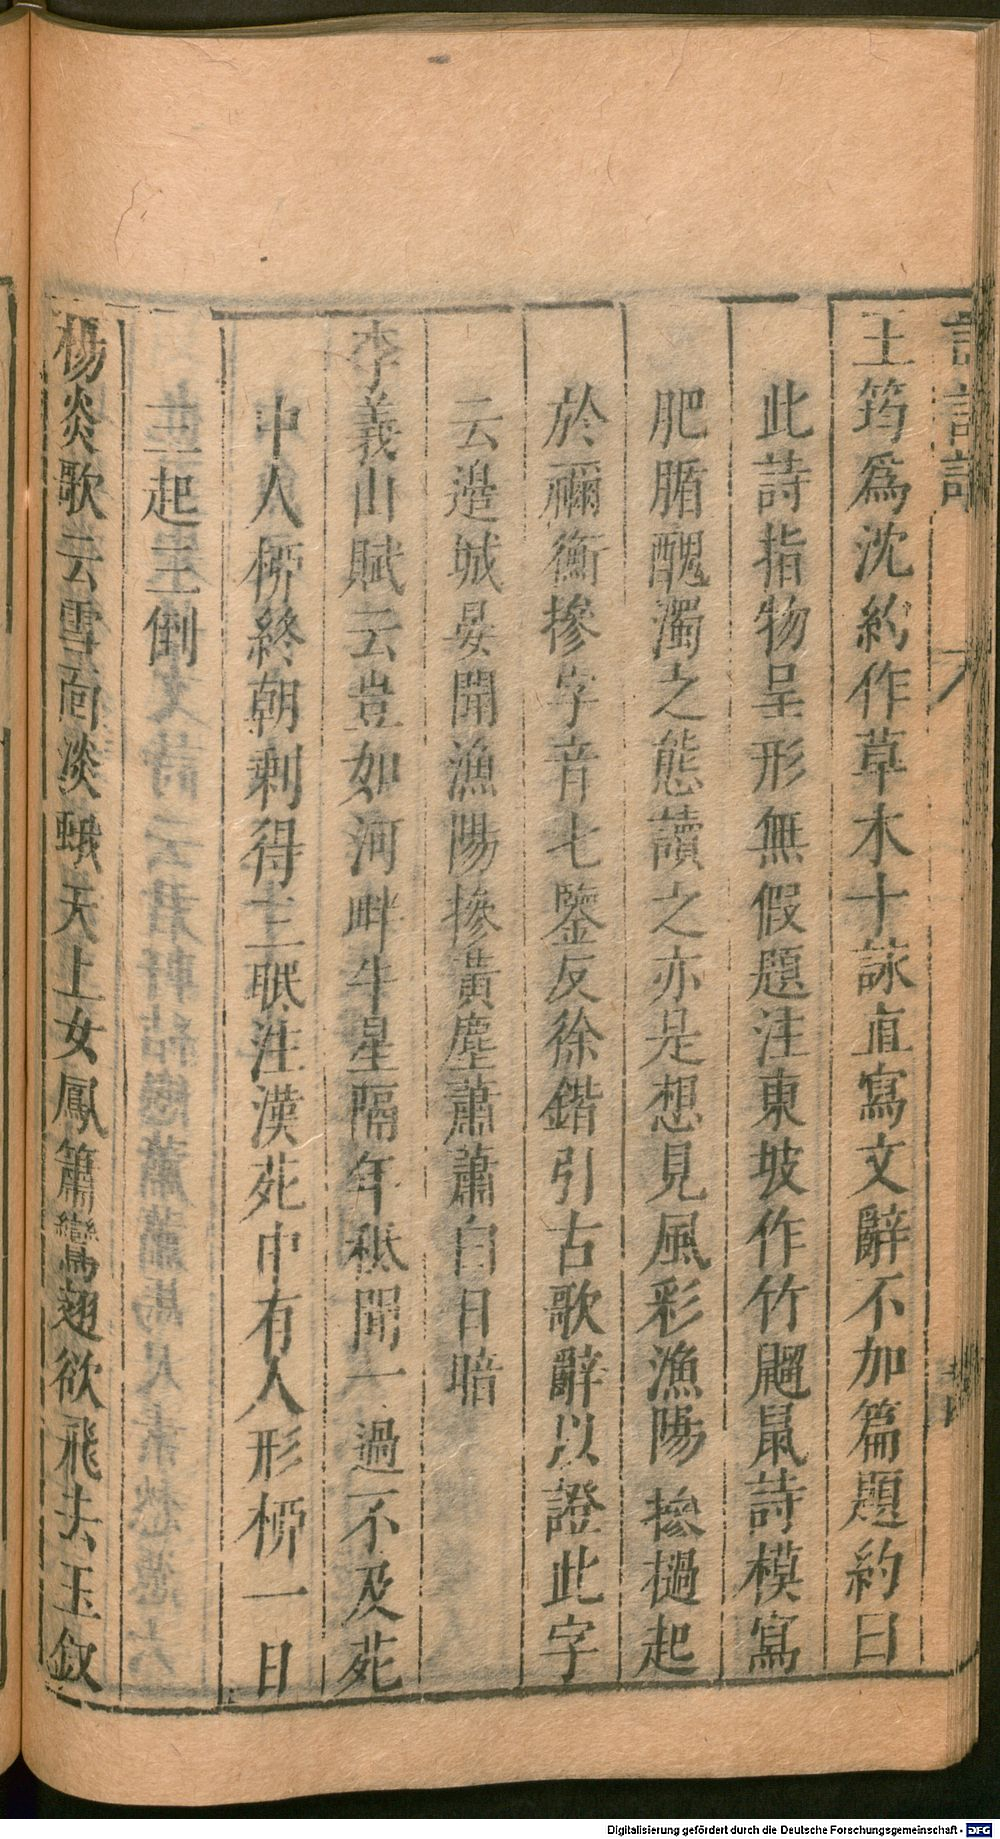 王筠爲沈約作草木十詠直寫文辭不加篇題約曰
此詩指物呈形無假題注東坡作竹䶉鼠詩模寫
肥腯醜濁之態讀之亦是想見風彩漁陽摻檛起
於禰衡摻字音七鑒反徐鍇引古歌辭以證此字
云邉城晏開漁陽摻黃塵蕭蕭白日暗
李義山賦云豈如河畔牛星隔年秪聞一過不及苑
中人桺終朝剩得三眠注漢苑中有人形桺一日
三起三倒
楊炎歌云雪面淡蛾天上女鳳簫鸞翅欲飛去玉釵
Digitalisierung gefördert durch die Deutsche Forschungsgemeinschaft - DFG